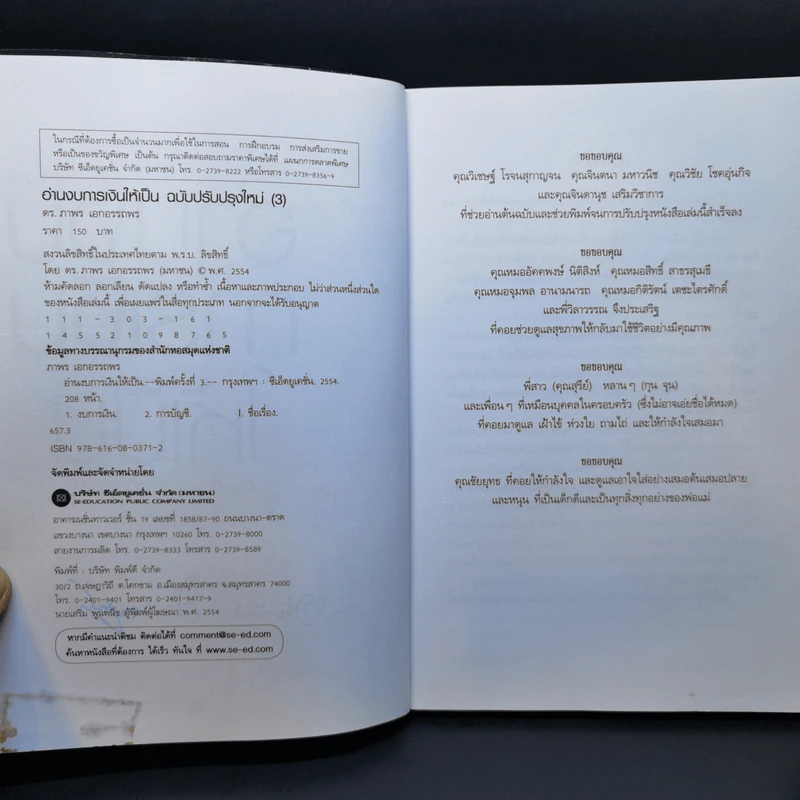 ในกรณีที่ต้องการซื้อเป็นจำนวนมากเพื่อใช้ในการสอน การฝึกอบรม การส่งเสริมการขาย
หรือเป็นของขวัญพิเศษ เป็นต้น กรุณาติดต่อสอบถามราคาพิเศษได้ที่ แผนกการตลาดพิเศษ
บริษัท ซีเอ็ดยูเคชั่น จำกัด (มหาชน) โทร. 0-2739-8222 หรือโทรสาร 0-2739-8356-9
อ่านงบการเงินให้เป็น ฉบับปรับปรุงใหม่ (3)
ดร. ภาพร เอกอรรถพร
ราคา 150 บาท
สงวนลิขสิทธิ์ในประเทศไทยตาม พ.ร.บ. ลิขสิทธิ์
โดย ดร. ภาพร เอกอรรถพร (มหาชน) © พ.ศ. 2554
ห้ามคัดลอก ลอกเลียน ดัดแปลง หรือทำซ้ำ เนื้อหาและภาพประกอบ ไม่ว่าส่วนหนึ่งส่วนใด
ของหนังสือเล่มนี้ เพื่อเผยแพร่ในสื่อทุกประเภท นอกจากจะได้รับอนุญาต
1 1 1 - 3 0 3 - 1 6 1
1 4 5 5 2 1 0 9 8 7 6 5
ข้อมูลทางบรรณานุกรมของสำนักหอสมุดแห่งชาติ
ภาพร เอกอรรถพร
อ่านงบการเงินให้เป็น.--พิมพ์ครั้งที่ 3.-- กรุงเทพฯ : ซีเอ็ดยูเคชั่น, 2554.
208 หน้า.
1. งบการเงิน. 2. การบัญชี. I. ชื่อเรื่อง.
657.3
ISBN 978-616-08-0371-2
จัดพิมพ์และจัดจำหน่ายโดย
บริษัท ซีเอ็ดยูเคชั่น จำกัด (มหาชน)
SE-EDUCATION PUBLIC COMPANY LIMITED
อาคารเนชั่นทาวเวอร์ ชั้น 19 เลขที่ 1858/87-90 ถนนบางนา-ตราด
แขวงบางนา เขตบางนา กรุงเทพฯ 10260 โทร. 0-2739-8000
สายงานการผลิต โทร. 0-2739-8333 โทรสาร 0-2739-8589
พิมพ์ที่ : บริษัท พิมพ์ดี จำกัด
30/2 ถ.เจษฎาวิถี ต.โคกขาม อ.เมืองสมุทรสาคร จ.สมุทรสาคร 74000
โทร. 0-2401-9401 โทรสาร 0-2401-9417-9
นายเสริม พูนพนิช ผู้พิมพ์ผู้โฆษณา พ.ศ. 2554
หากมีคำแนะนำติชม ติดต่อได้ที่ comment@se-ed.com
ค้นหาหนังสือที่ต้องการ ได้เร็ว ทันใจ ที่ www.se-ed.com
ขอขอบคุณ
คุณวิเชษฐ์ โรจนสุกาญจน คุณจินตนา มหาวนิช คุณวิชัย โชคอุ่นกิจ
และคุณจินดานุช เสริมวิชาการ
ที่ช่วยอ่านต้นฉบับและช่วยพิมพ์จนการปรับปรุงหนังสือเล่มนี้สำเร็จลง
ขอขอบคุณ
คุณหมออัคคพงษ์ นิติสิงห์ คุณหมอสิทธิ์ สาธรสุเมธี
คุณหมอจุมพล อานามนารถ คุณหมอกิติรัตน์ เตชะไตรศักดิ์
และพี่วิลาวรรณ จึงประเสริฐ
ที่คอยช่วยดูแลสุขภาพให้กลับมาใช้ชีวิตอย่างมีคุณภาพ
ขอขอบคุณ
พี่สาว (คุณสุรีย์) หลานๆ (กุน จุน)
และเพื่อนๆ ที่เหมือนบุคคลในครอบครัว (ซึ่งไม่อาจเอ่ยชื่อได้หมด)
ที่คอยมาดูแล เฝ้าไข้ ห่วงใย ถามไถ่ และให้กำลังใจเสมอมา
ขอขอบคุณ
คุณชัยยุทธ ที่คอยให้กำลังใจ และดูแลเอาใจใส่อย่างเสมอต้นเสมอปลาย
และหนุน ที่เป็นเด็กดีและเป็นทุกสิ่งทุกอย่างของพ่อแม่